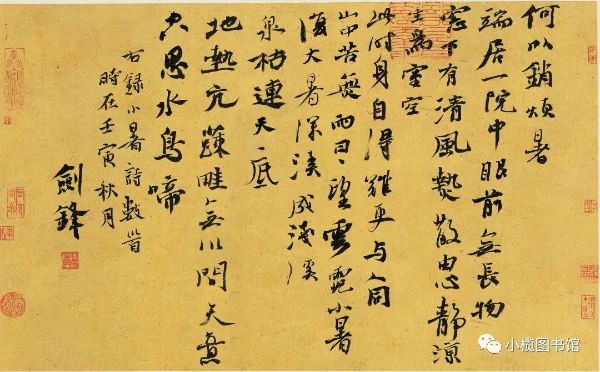 何以銷煩暑
端居一院中眼前無長物
窓下有清風熱散由心靜凉
生為室空
此時身自得難更与人同
山中苦無雨日日望雲霓小暑
復大暑深溪成淺溪
泉枯連天底
地熱亢蔬畦無以問天意
空思水鳥啼
右錄小暑詩數首
時在壬寅秋月
劍鋒
小榄图书馆